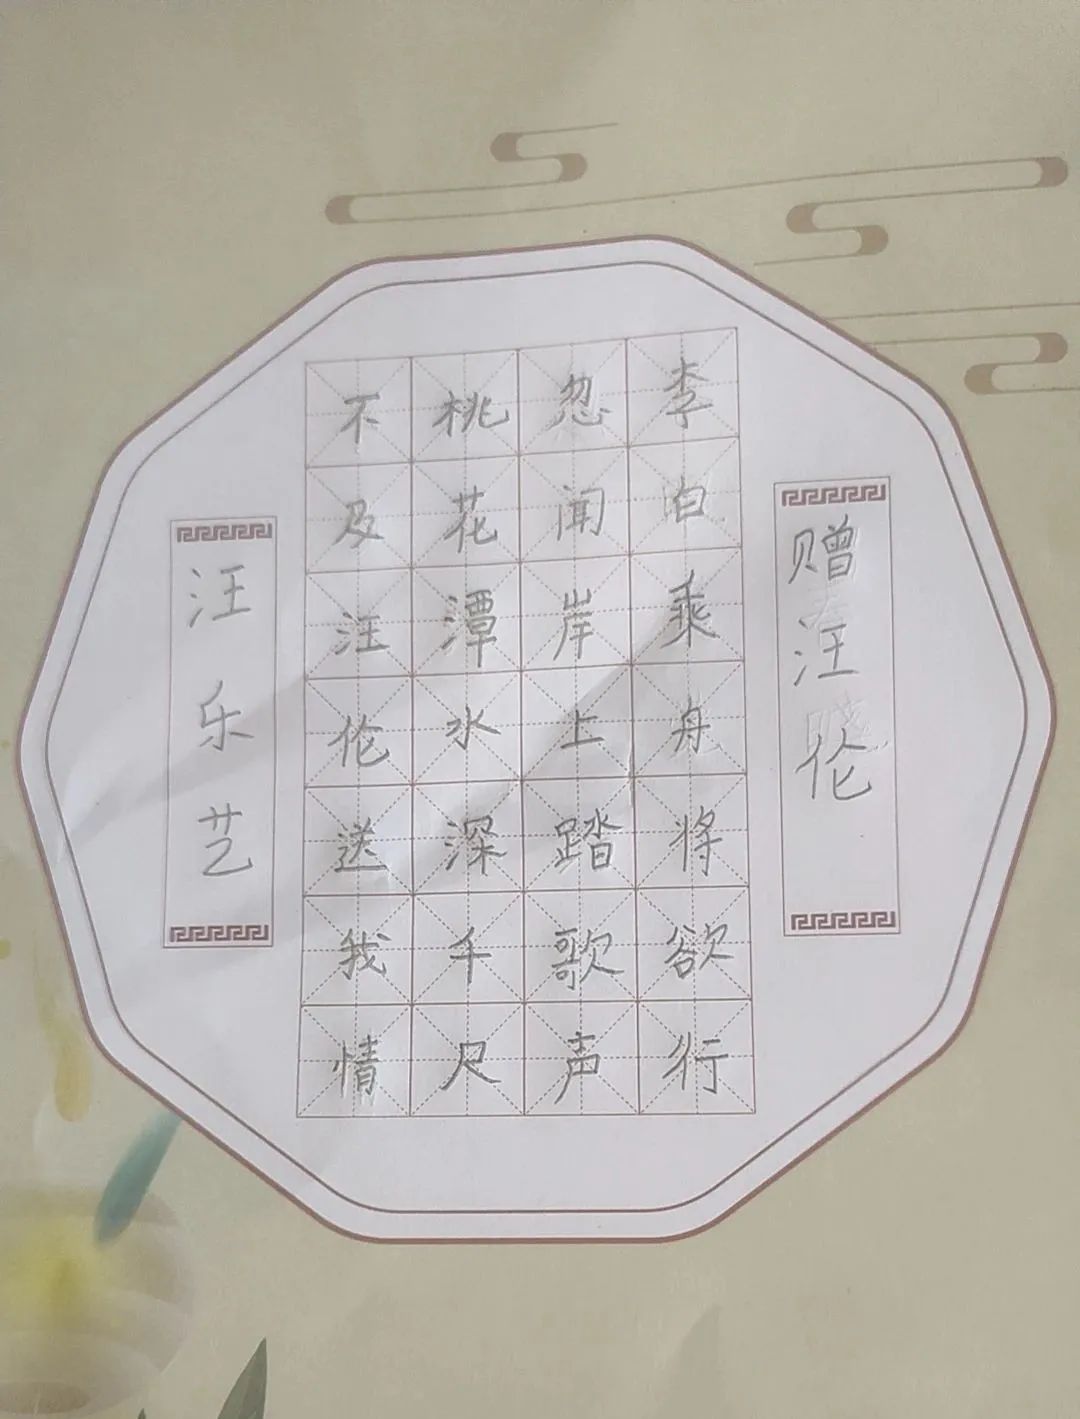 赠汪伦
李白乘舟将欲行
忽闻岸上踏歌声
桃花潭水深千尺
不及汪伦送我情
汪乐艺